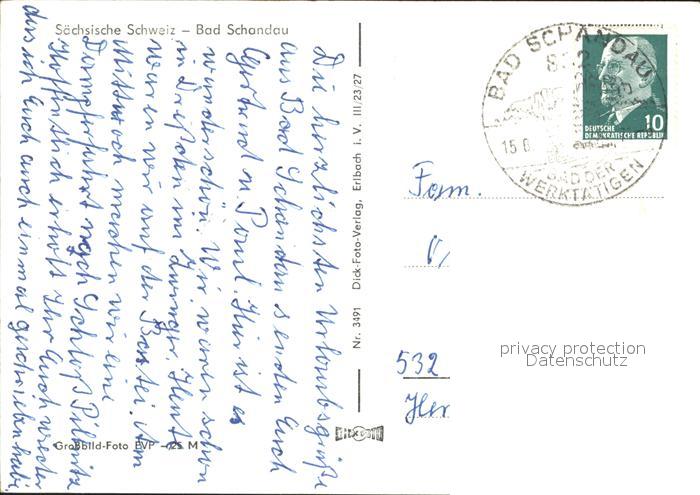 Sächsische Schweiz – Bad Schandau
Die herzlichsten Urlaubsgrüße
aus Bad Schandau senden Euch
Gertraud u. Paul. Hier ist es
wunderschön. Wir waren schon
in Dresden im Zwinger. Heute
waren wir auf der Bastei. Am
Mittwoch machen wir eine
Dampferfahrt nach Schloß Pillnitz
Hoffentlich erholt Ihr Euch wieder
daß ich Euch auch einmal geschrieben habe.
Großbild-Foto EVP –,25 M
Nr. 3491 Dick-Foto-Verlag, Erlbach i. V. III/23/27
BAD SCHANDAU
832
15 6
BAD DER
WERKTÄTIGEN
DEUTSCHE
DEMOKRATISCHE REPUBLIK
10
Fam.
532
Her
privacy protection
Datenschutz